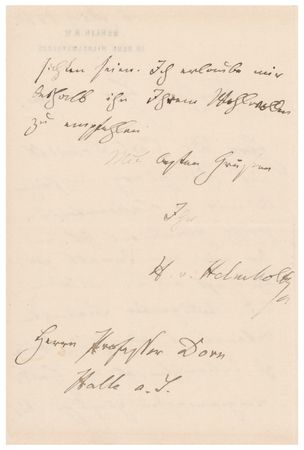 sichten seien. Ich erlaube mir
deshalb ihn Ihrem Wohlwollen
zu empfehlen
Mit besten Grüßen
Ihr
H. v. Helmholtz
Herrn Professor Dorn
Halle a. S.